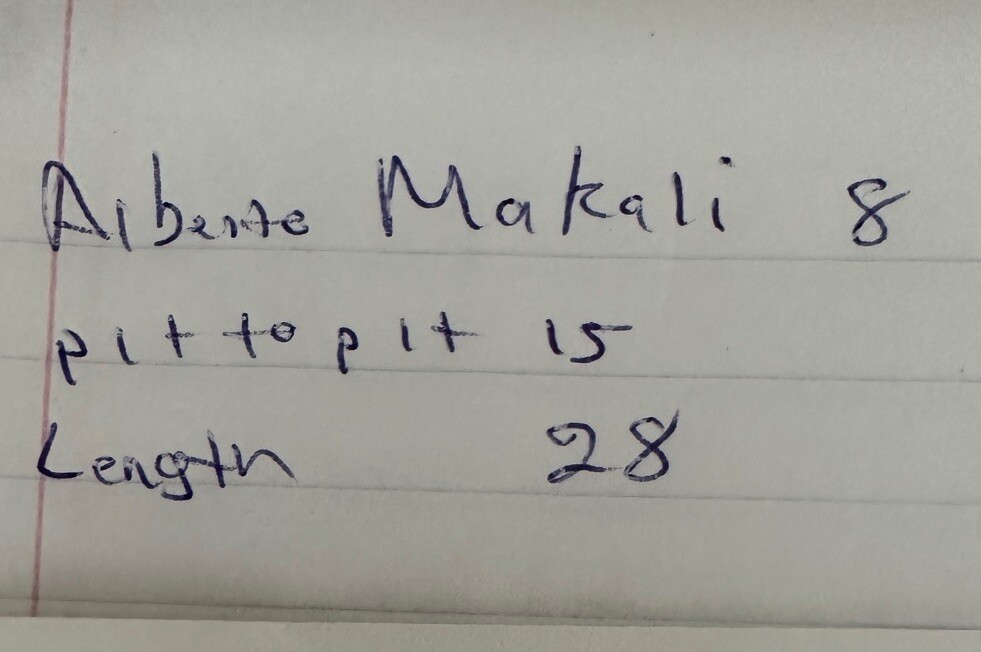 Alberto Makali 8
pit to pit 15
Length 28